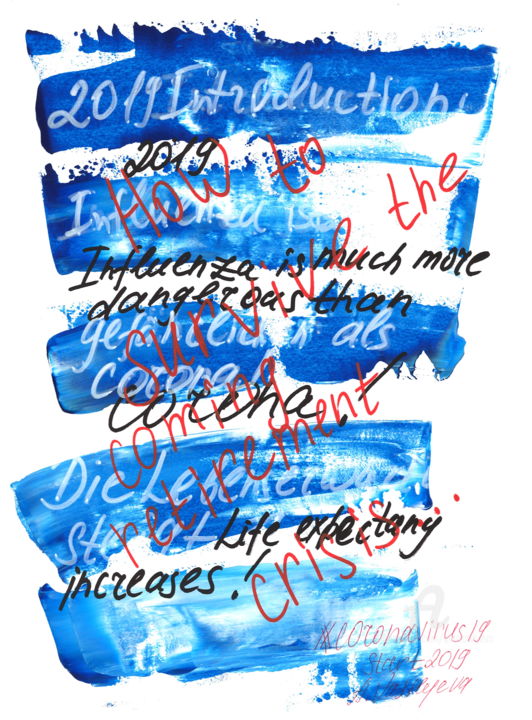 2019 Introduction
2019
How to
survive the
coming
retirement
crisis...
Influenza is
Influenza is much more
dangerous than
gefährlicher als
Corona
corona!
Die Lebenserwartung
steigt
Life expectany
increases!
#COronavirus19
start 2019